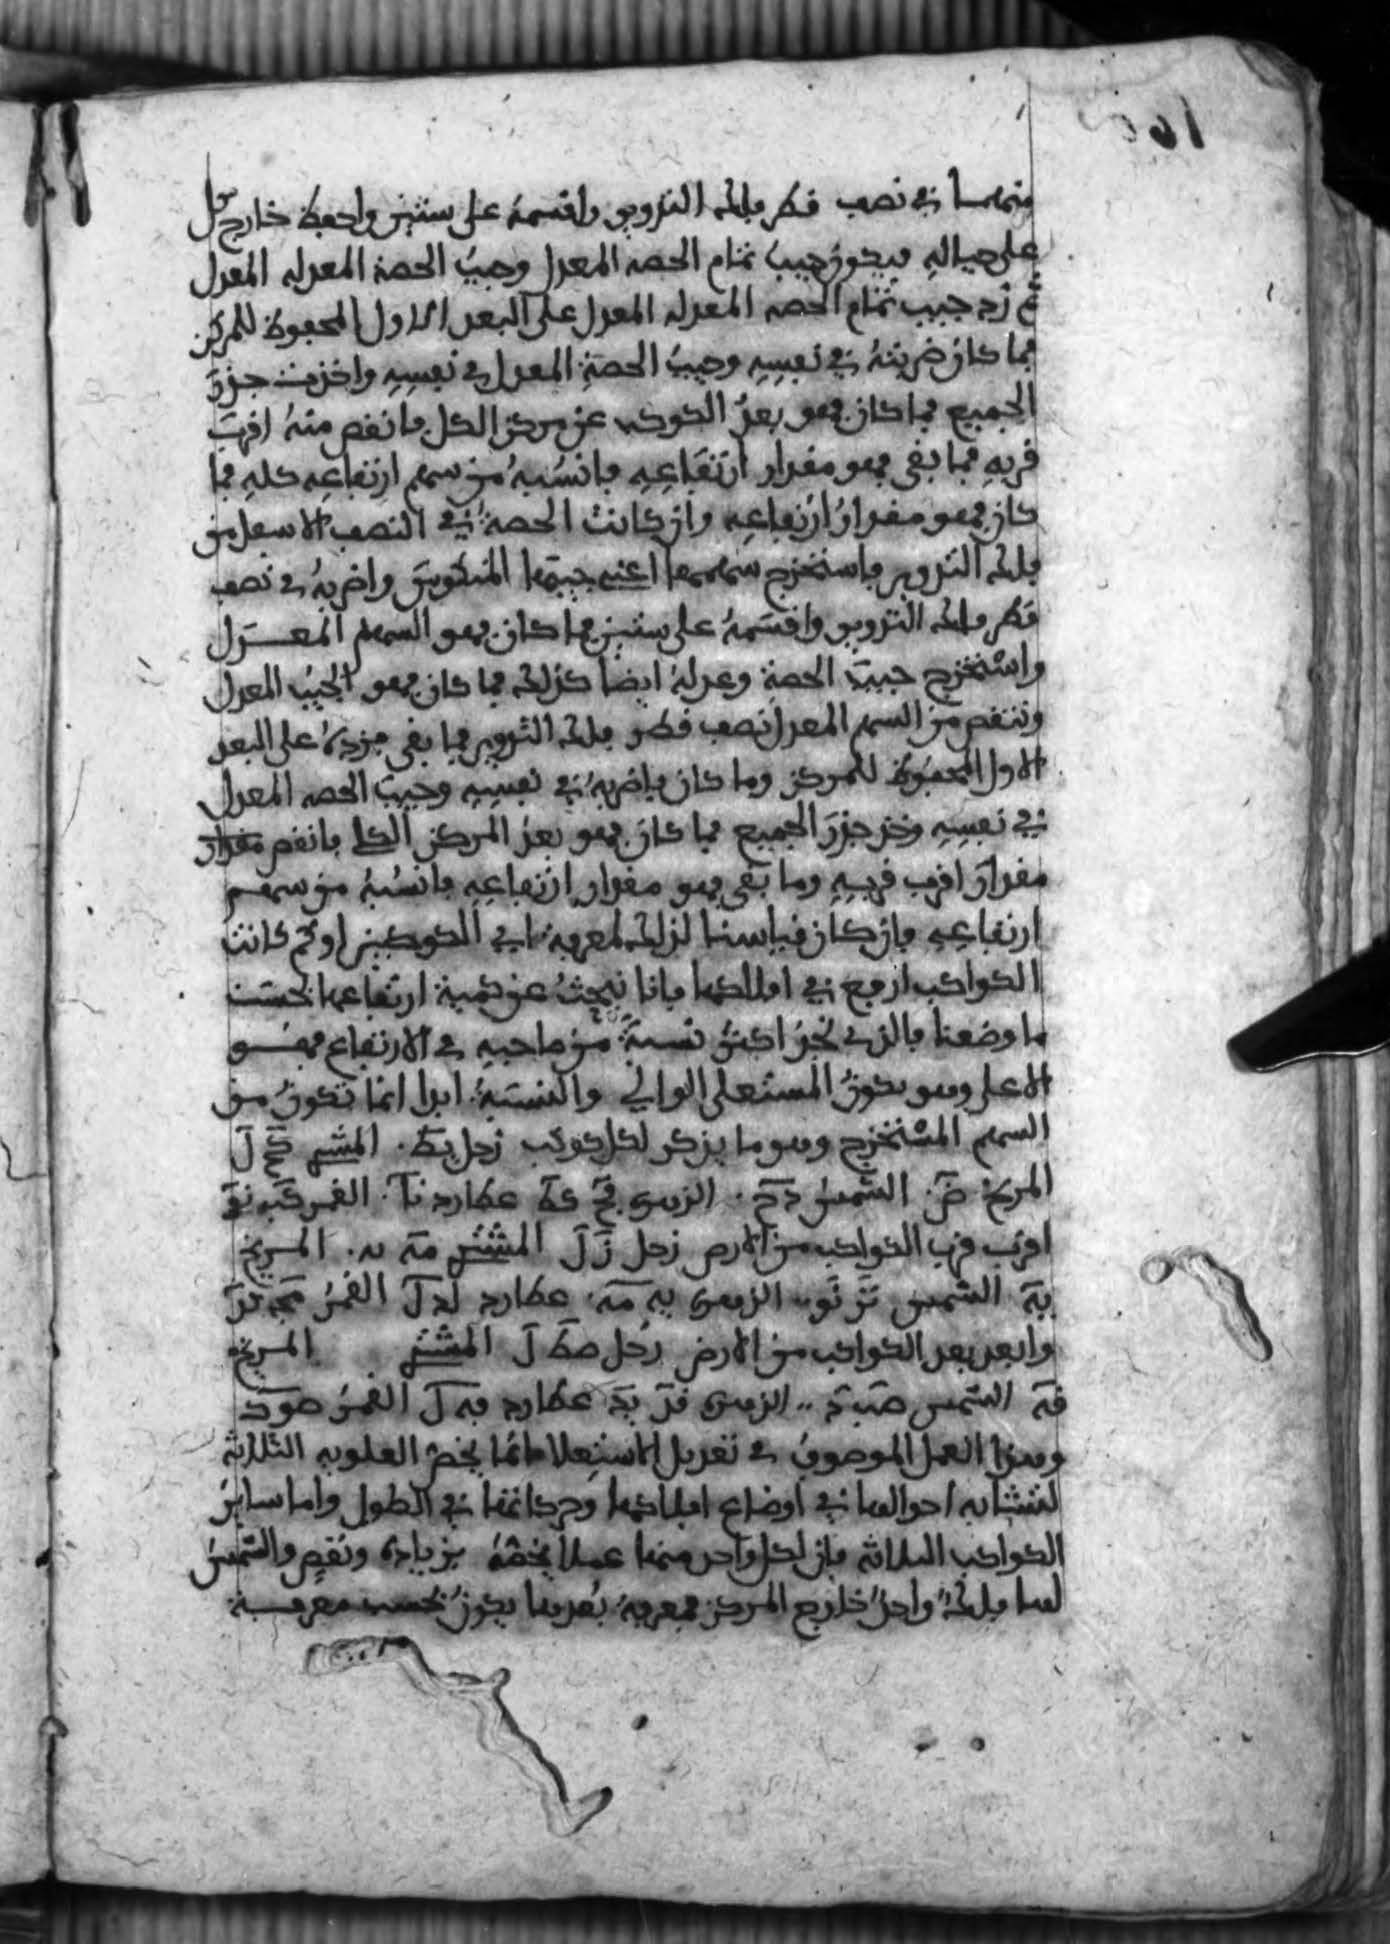 منهما في نصف قطر فلك التدوير واقسمه على ستين واحفظ خارج كل
على حياله فيكون جيب تمام الحصه المعدل وجيب الحصة المعدله المعدل
ثم زد جيب تمام الحصه المعدله المعدل على البعد الاول المحفوظ للمركز
فما كان ضربته في نفسه وجيب الحصة المعدل في نفسه واخذت جذر
الجميع فما كان فهو بعد الكوكب عن مركز الكل فانقص منه اقرب
قربه فما بقى فهو مقدار ارتفاعه فانسبه من سهم ارتفاعه كله فما
كان فهو مقدار ارتفاعه وان كانت الحصة في النصف الاسفل من
فلك التدوير فاستخرج سهمها اعني جيبها المنكوس واضربه في نصف
قطر فلك التدوير واقسمه على ستين فما كان فهو السهم المعدل
واستخرج جيب الحصة وعدله ايضا كذلك فما كان فهو الجيب المعدل
وتنقص من السهم المعدل نصف قطر فلك التدوير فما بقى فزده على البعد
الاول المحفوظ للمركز وما كان فاضربه في نفسه وجيب الحصه المعدل
في نفسه وخذ جذر الجميع فما كان فهو بعد المركز الكل فانقص مقدار
مقدار اقرب قربه وما بقى فهو مقدار ارتفاعه فانسبه من سهم
ارتفاعه فان كان قياسنا لذلك لمعرفة اي الكوكبين او كم كانت
الكواكب ارفع في افلاكها فانا نبحث عن كمية ارتفاعها بحسب
ما وضعنا فالذي نجد اكثر نسبة من صاحبه في الارتفاع فهو
الاعلى وهو يكون المستعلى الوالي والنسبة ابدا انما تكون من
السهم المستخرج وهو ما يذكر لكل كوكب زحل يط المشتر كح ل
المريخ الشمس الزهرى عطارد نا القمر
اقرب قرب الكواكب من الارض زحل ن ل المشتر مه المريخ
يه الشمس الزهرى يه مه عطارد لد ل القمر
وابعد بعد الكواكب من الارض زحل صط ل المشتر المريخ
قه الشمس الزهرى عطارد القمر
وهذا العمل الموصوف في تعديل الاستعلا فانما يخص العلويه الثلاثة
لتشابه احوالها في اوضاع افلاكها وحركاتها في الطول واما ساير
الكواكب الثلاثه فان لكل واحد منها عملا يخصه بزيادة ونقص والشمس
لها فلك واحد خارج المركز فمعرفة بعدها يكون بحسب معرفة